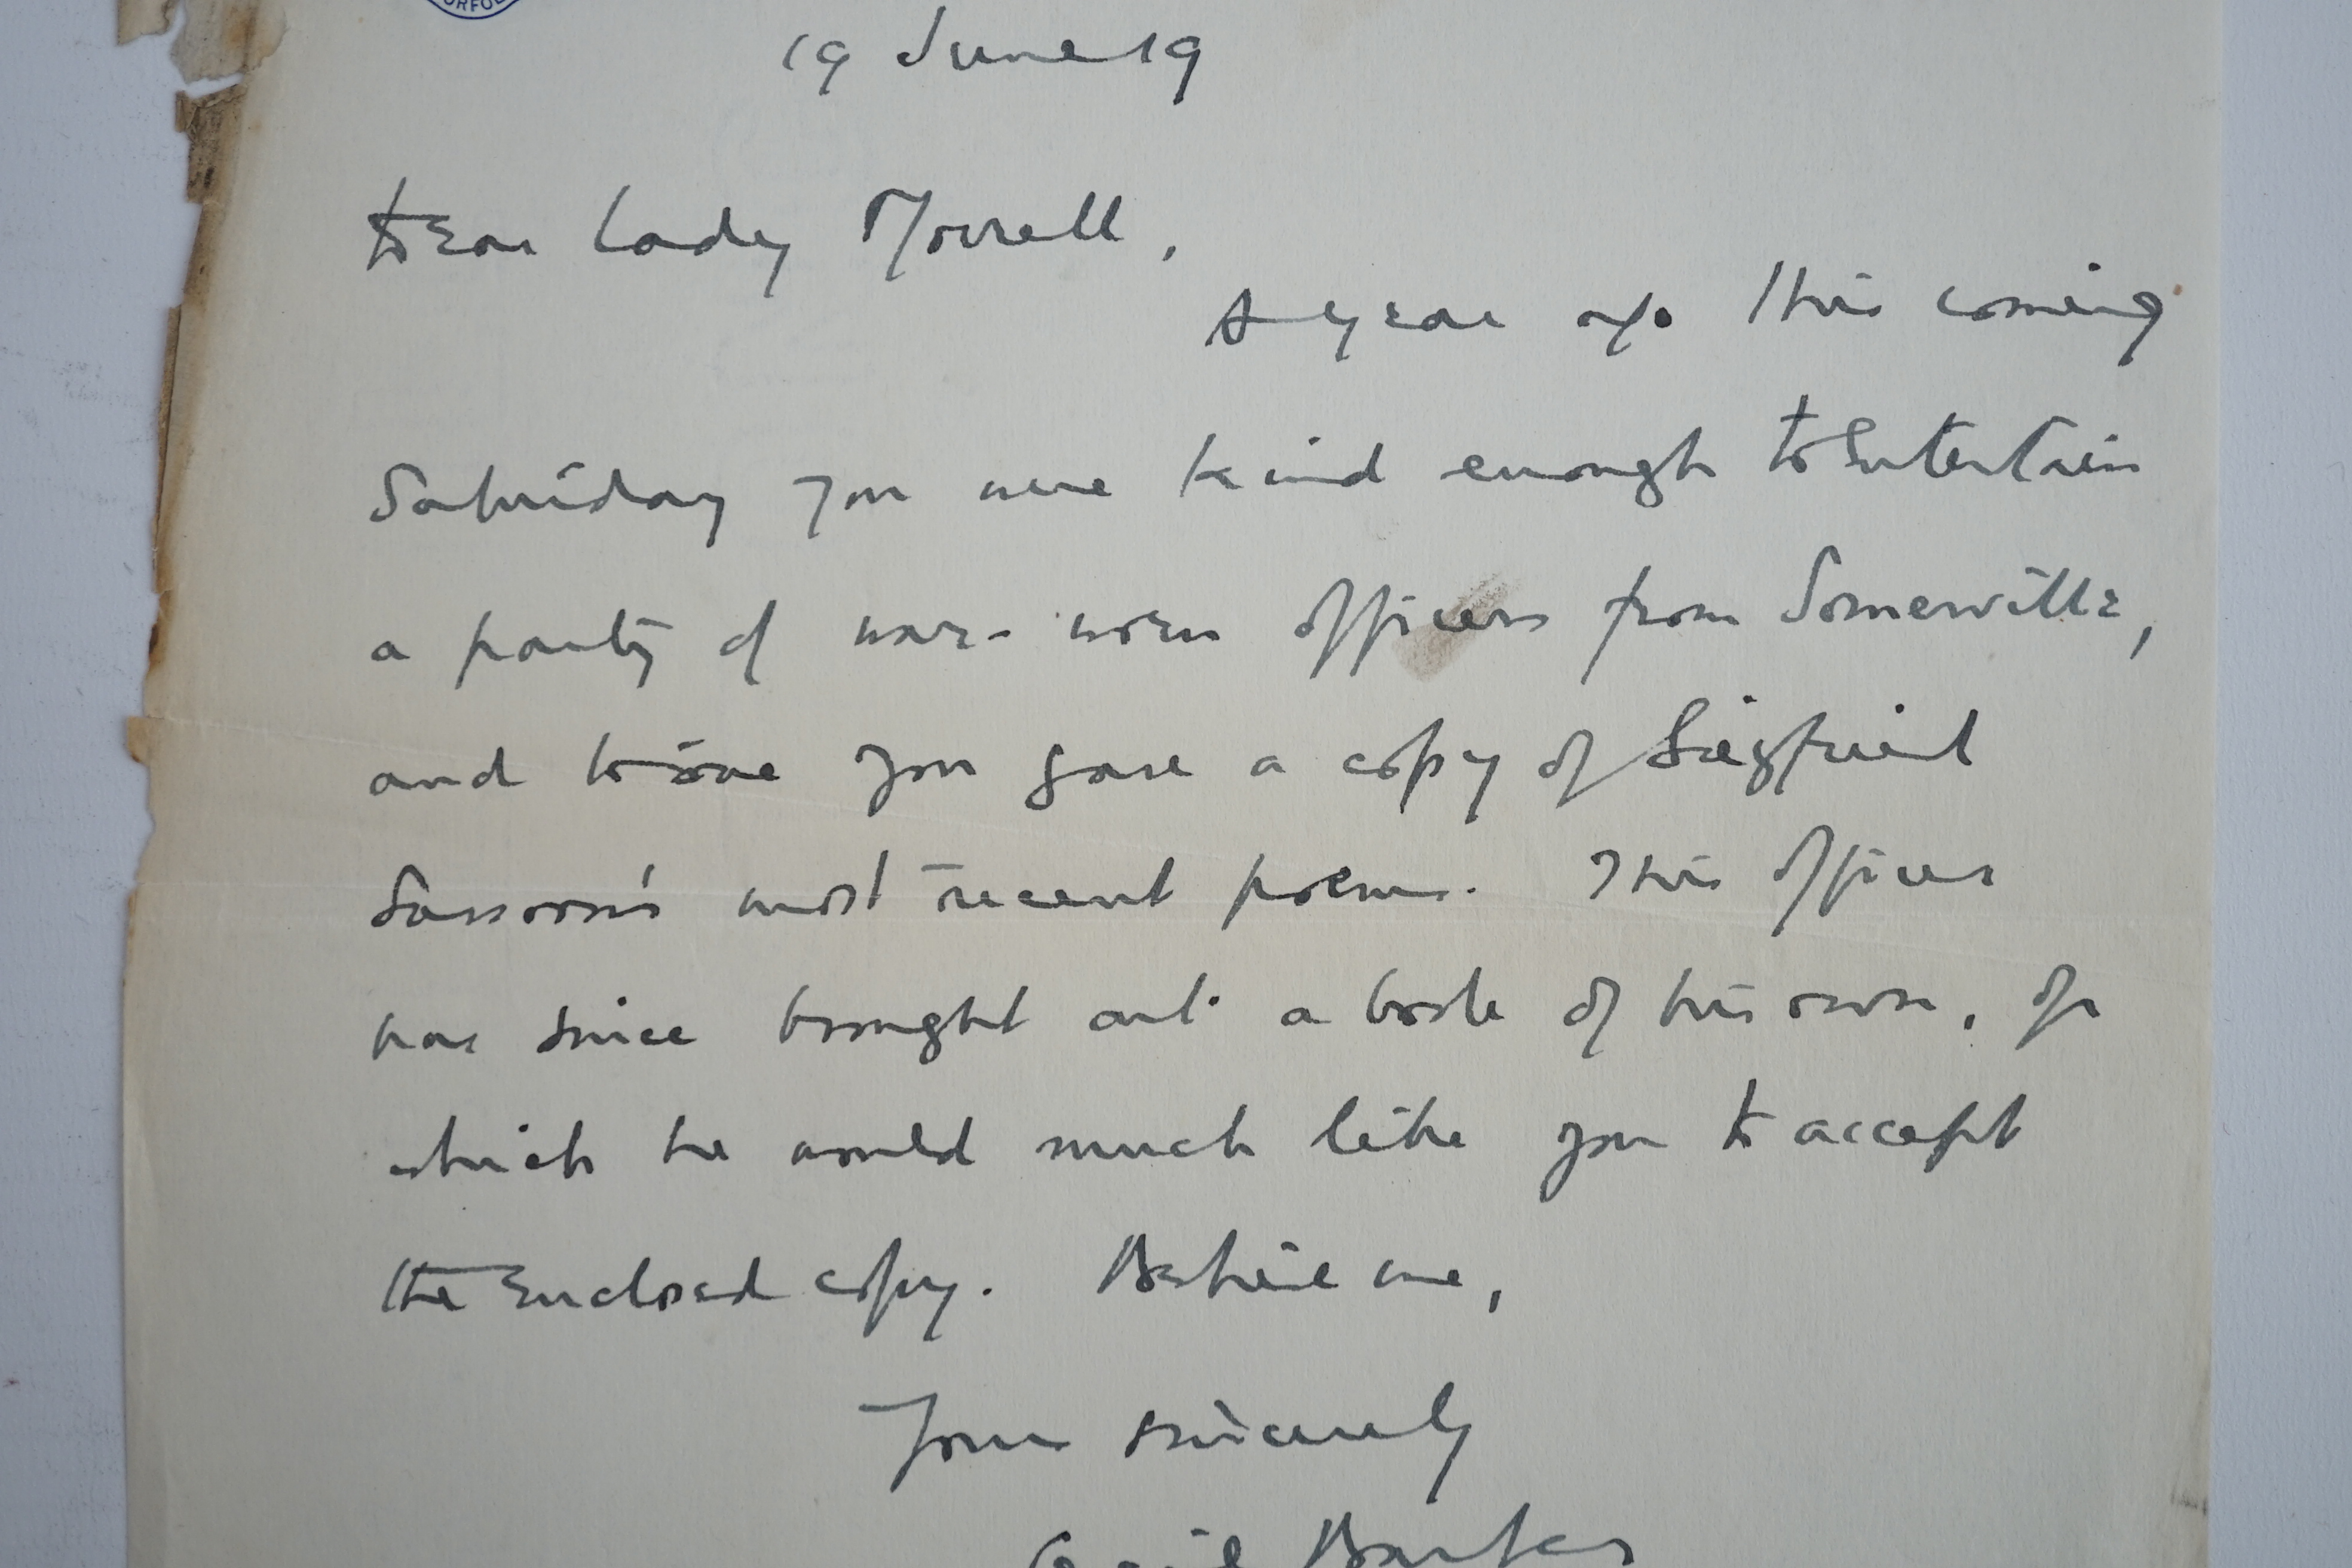 19 June 19
Dear Lady Morrell,
A year ago this coming
Saturday you were kind enough to entertain
a party of war-worn officers from Somerville,
and to one you gave a copy of Siegfried
Sassoon's most recent poems. This officer
has since brought out a book of his own, of
which he would much like you to accept
the enclosed copy. Believe me,
Yours sincerely